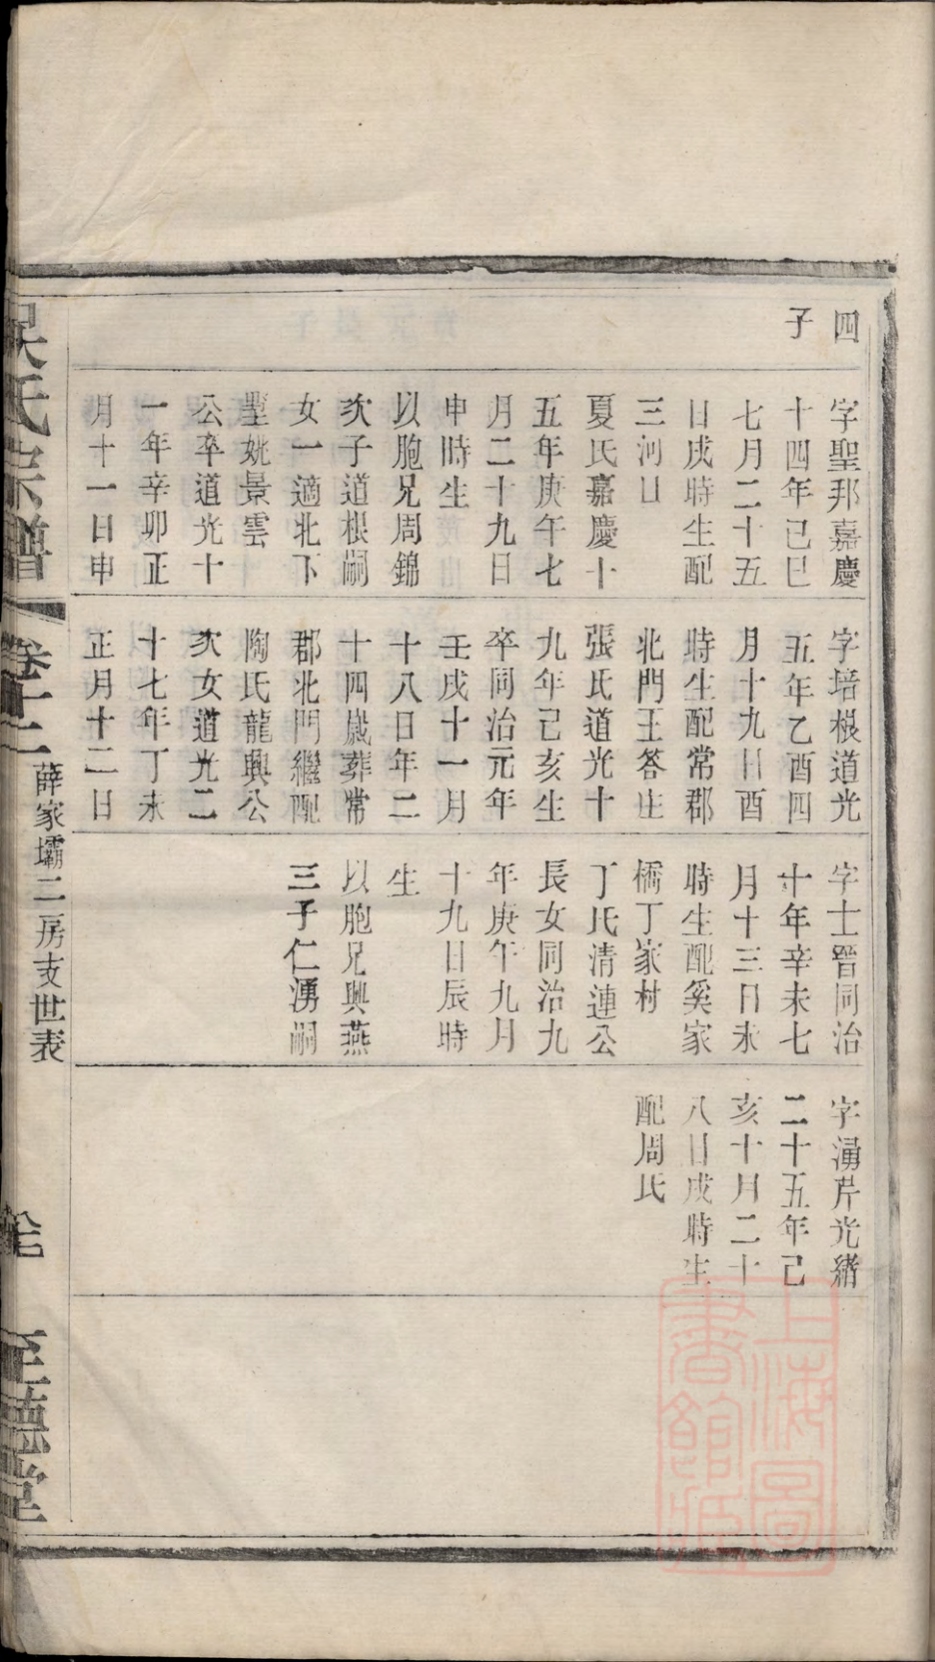 四
子
字聖邦嘉慶
十四年己巳
七月二十五
日戌時生配
三河口
夏氏嘉慶十
五年庚午七
月二十九日
申時生
以胞兄周錦
次子道根嗣
女一適北下
聖姚景雲
公卒道光十
一年辛卯正
月十一日申
字培根道光
五年乙酉四
月十九日酉
時生配常郡
北門王答庄
張氏道光十
九年己亥生
卒同治元年
壬戌十一月
十八日年二
十四歲葬常
郡北門繼配
陶氏龍興公
次女道光二
十七年丁未
正月十二日
字士晉同治
十年辛未七
月十三日未
時生配奚家
橋丁家村
丁氏清連公
長女同治九
年庚午九月
十九日辰時
生
以胞兄興燕
三子仁湧嗣
字湧芹光緒
二十五年己
亥十月二十
八日戌時生
配周氏
吳氏宗譜
卷十二
薛家壩二房支世表
至德堂
上海圖
書館藏